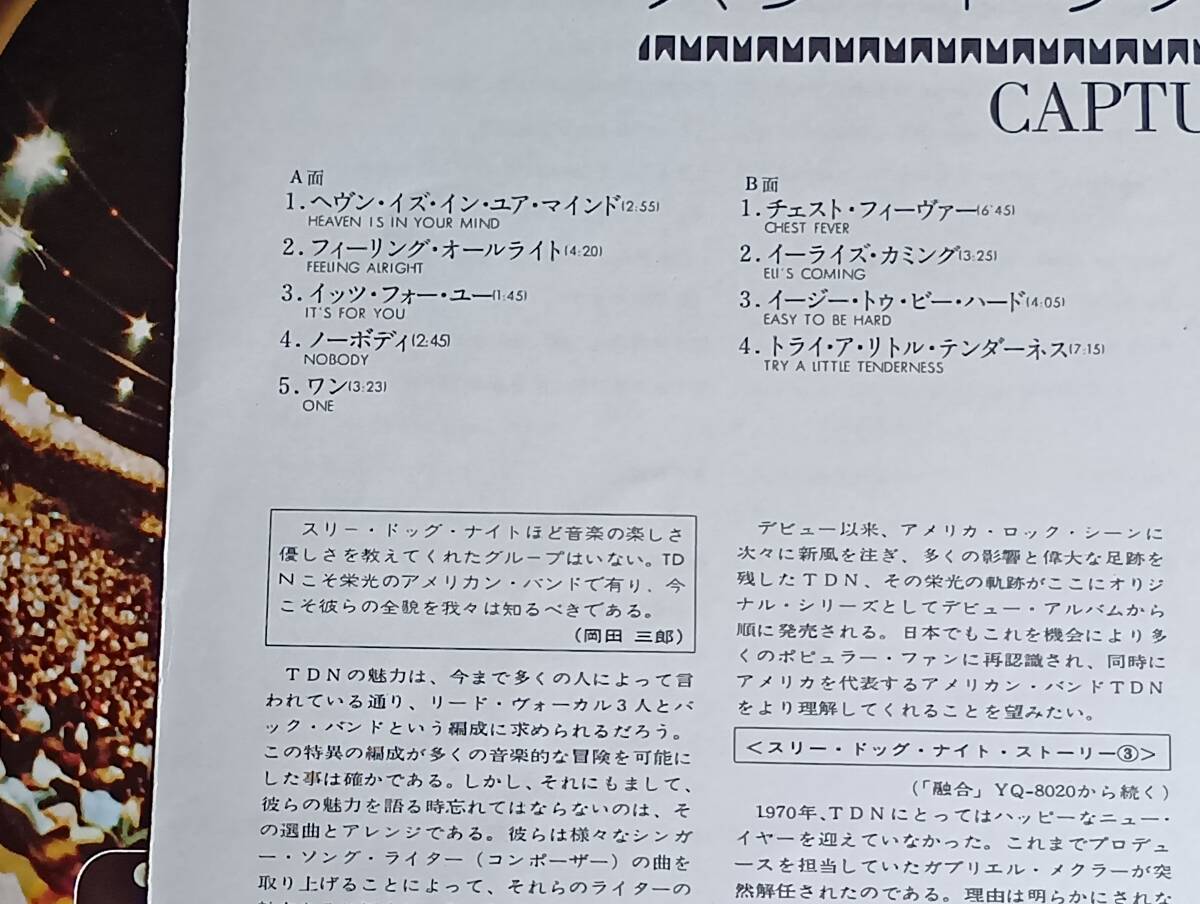 CAPTU
A面
1.ヘヴン・イズ・イン・ユア・マインド(2:55)
HEAVEN IS IN YOUR MIND
2.フィーリング・オールライト(4:20)
FEELING ALRIGHT
3.イッツ・フォー・ユー(1:45)
IT'S FOR YOU
4.ノーボディ(2:45)
NOBODY
5.ワン(3:23)
ONE
B面
1.チェスト・フィーヴァー(6'45)
CHEST FEVER
2.イーライズ・カミング(3:25)
ELI'S COMING
3.イージー・トゥ・ビー・ハード(4:05)
EASY TO BE HARD
4.トライ・ア・リトル・テンダーネス(7:15)
TRY A LITTLE TENDERNESS
スリー・ドッグ・ナイトほど音楽の楽しさ
優しさを教えてくれたグループはいない。TD
Nこそ栄光のアメリカン・バンドで有り、今
こそ彼らの全貌を我々は知るべきである。
(岡田 三郎)
TDNの魅力は、今まで多くの人によって言
われている通り、リード・ヴォーカル3人とバ
ック・バンドという編成に求められるだろう。
この特異の編成が多くの音楽的な冒険を可能に
した事は確かである。しかし、それにもまして、
彼らの魅力を語る時忘れてはならないのは、そ
の選曲とアレンジである。彼らは様々なシンガ
ー・ソング・ライター(コンポーザー)の曲を
取り上げることによって、それらのライターの
デビュー以来、アメリカ・ロック・シーンに
次々に新風を注ぎ、多くの影響と偉大な足跡を
残したTDN、その栄光の軌跡がここにオリジ
ナル・シリーズとしてデビュー・アルバムから
順に発売される。日本でもこれを機会により多
くのポピュラー・ファンに再認識され、同時に
アメリカを代表するアメリカン・バンドTDN
をより理解してくれることを望みたい。
<スリー・ドッグ・ナイト・ストーリー③>
(「融合」YQ-8020から続く)
1970年、TDNにとってはハッピーなニュー・
イヤーを迎えていなかった。これまでプロデュ
ースを担当していたガブリエル・メクラーが突
然解任されたのである。理由は明らかにされな